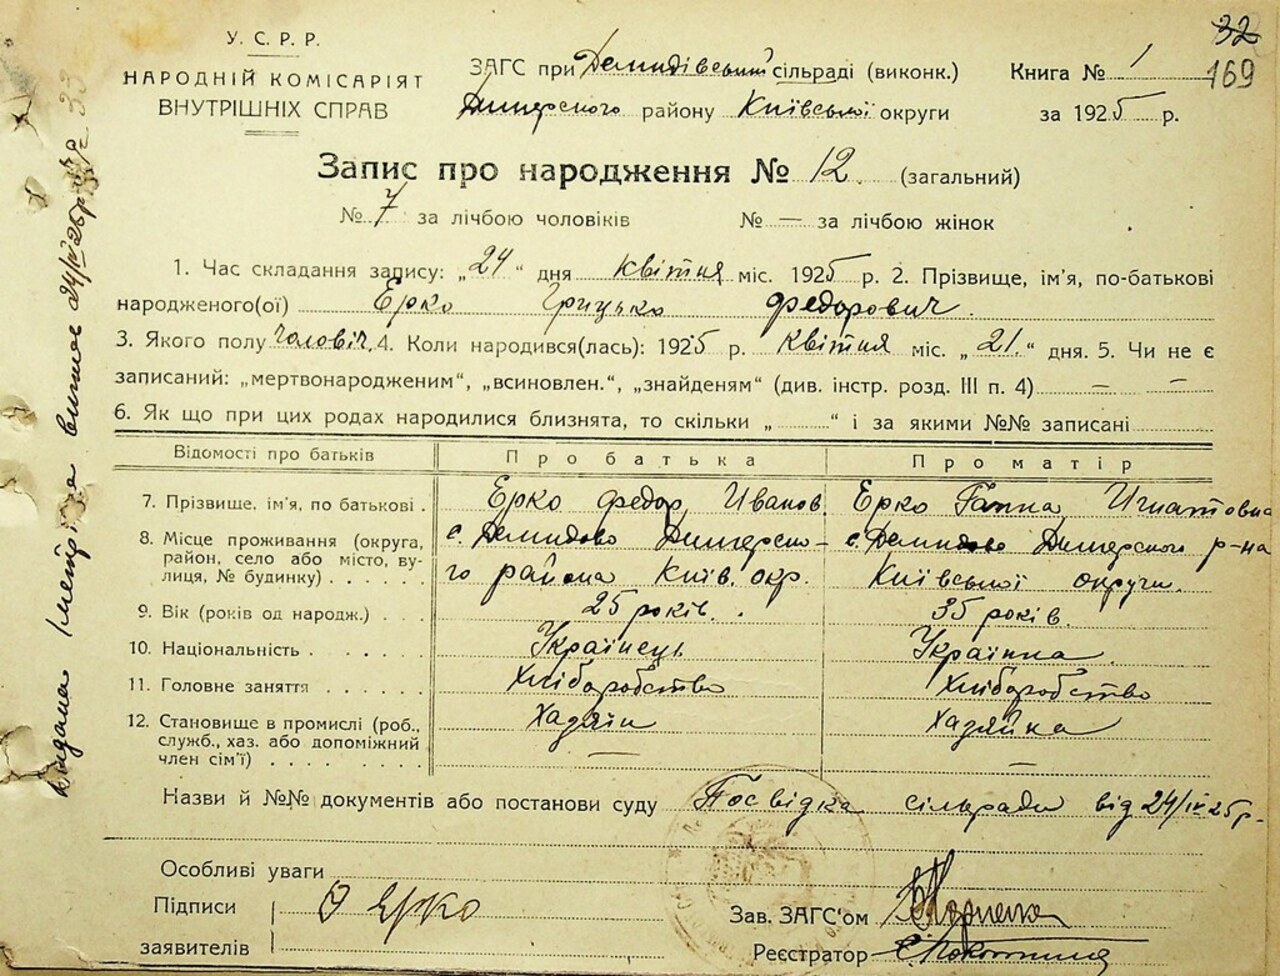 32
169
У. С. Р. Р.
НАРОДНІЙ КОМІСАРІЯТ
ВНУТРІШНІХ СПРАВ
ЗАГС при Демидівський сільраді (виконк.)
Димерского району Київської округи
Книга № 1
за 1925 р.
Запис про народження № 12. (загальний)
№ 7 за лічбою чоловіків № — за лічбою жінок
1. Час складання запису: „24“ дня квітня міс. 1925 р. 2. Прізвище, ім'я, по-батькові
народженого(ої) Ерко Грицько Федорович.
3. Якого полу чоловіч. 4. Коли народився(лась): 1925 р. квітня міс. „21.“ дня. 5. Чи не є
записаний: „мертвонародженим“, „всиновлен.“, „знайденям“ (див. інстр. розд. III п. 4) — —
6. Як що при цих родах народилися близнята, то скільки „ “ і за якими №№ записані
Відомості про батьків Про батька Про матір
7. Прізвище, ім'я, по батькові . Ерко Федор Иванов. Ерко Ганна Игнатовна
8. Місце проживання (округа, район, село або місто, вулиця, № будинку) с. Демидово Димерско- с. Демидово Димерского р-на
го района Київ. окр. Київської округи.
9. Вік (років од народж.) 25 років. 35 років.
10. Національність Українець Українка
11. Головне заняття Хліборобство Хліборобство
12. Становище в промислі (роб., служб., хаз. або допоміжний член сім'ї) Хадяін Хазяйка
— —
Назви й №№ документів або постанови суду Посвідка сільради від 24/IV 25 р.
Особливі уваги
Підписи
заявителів
Ф Ерко
Зав. ЗАГС'ом
Реєстратор